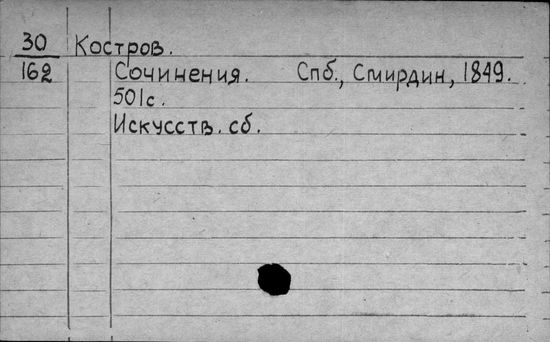 30 Костров.
162 Сочинения. Спб., Смирдин, 1849.
501с.
Искусств. сб.